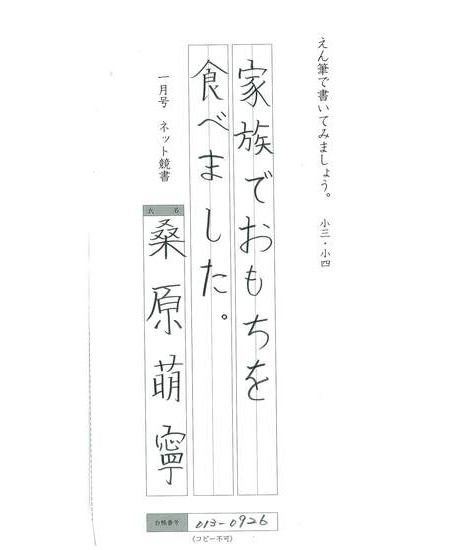 えん筆で書いてみましょう。 小三・小四
家族でおもちを
食べました。
一月号 ネット競書
氏名
桑原萌寧
台帳番号 013-0926
(コピー不可)